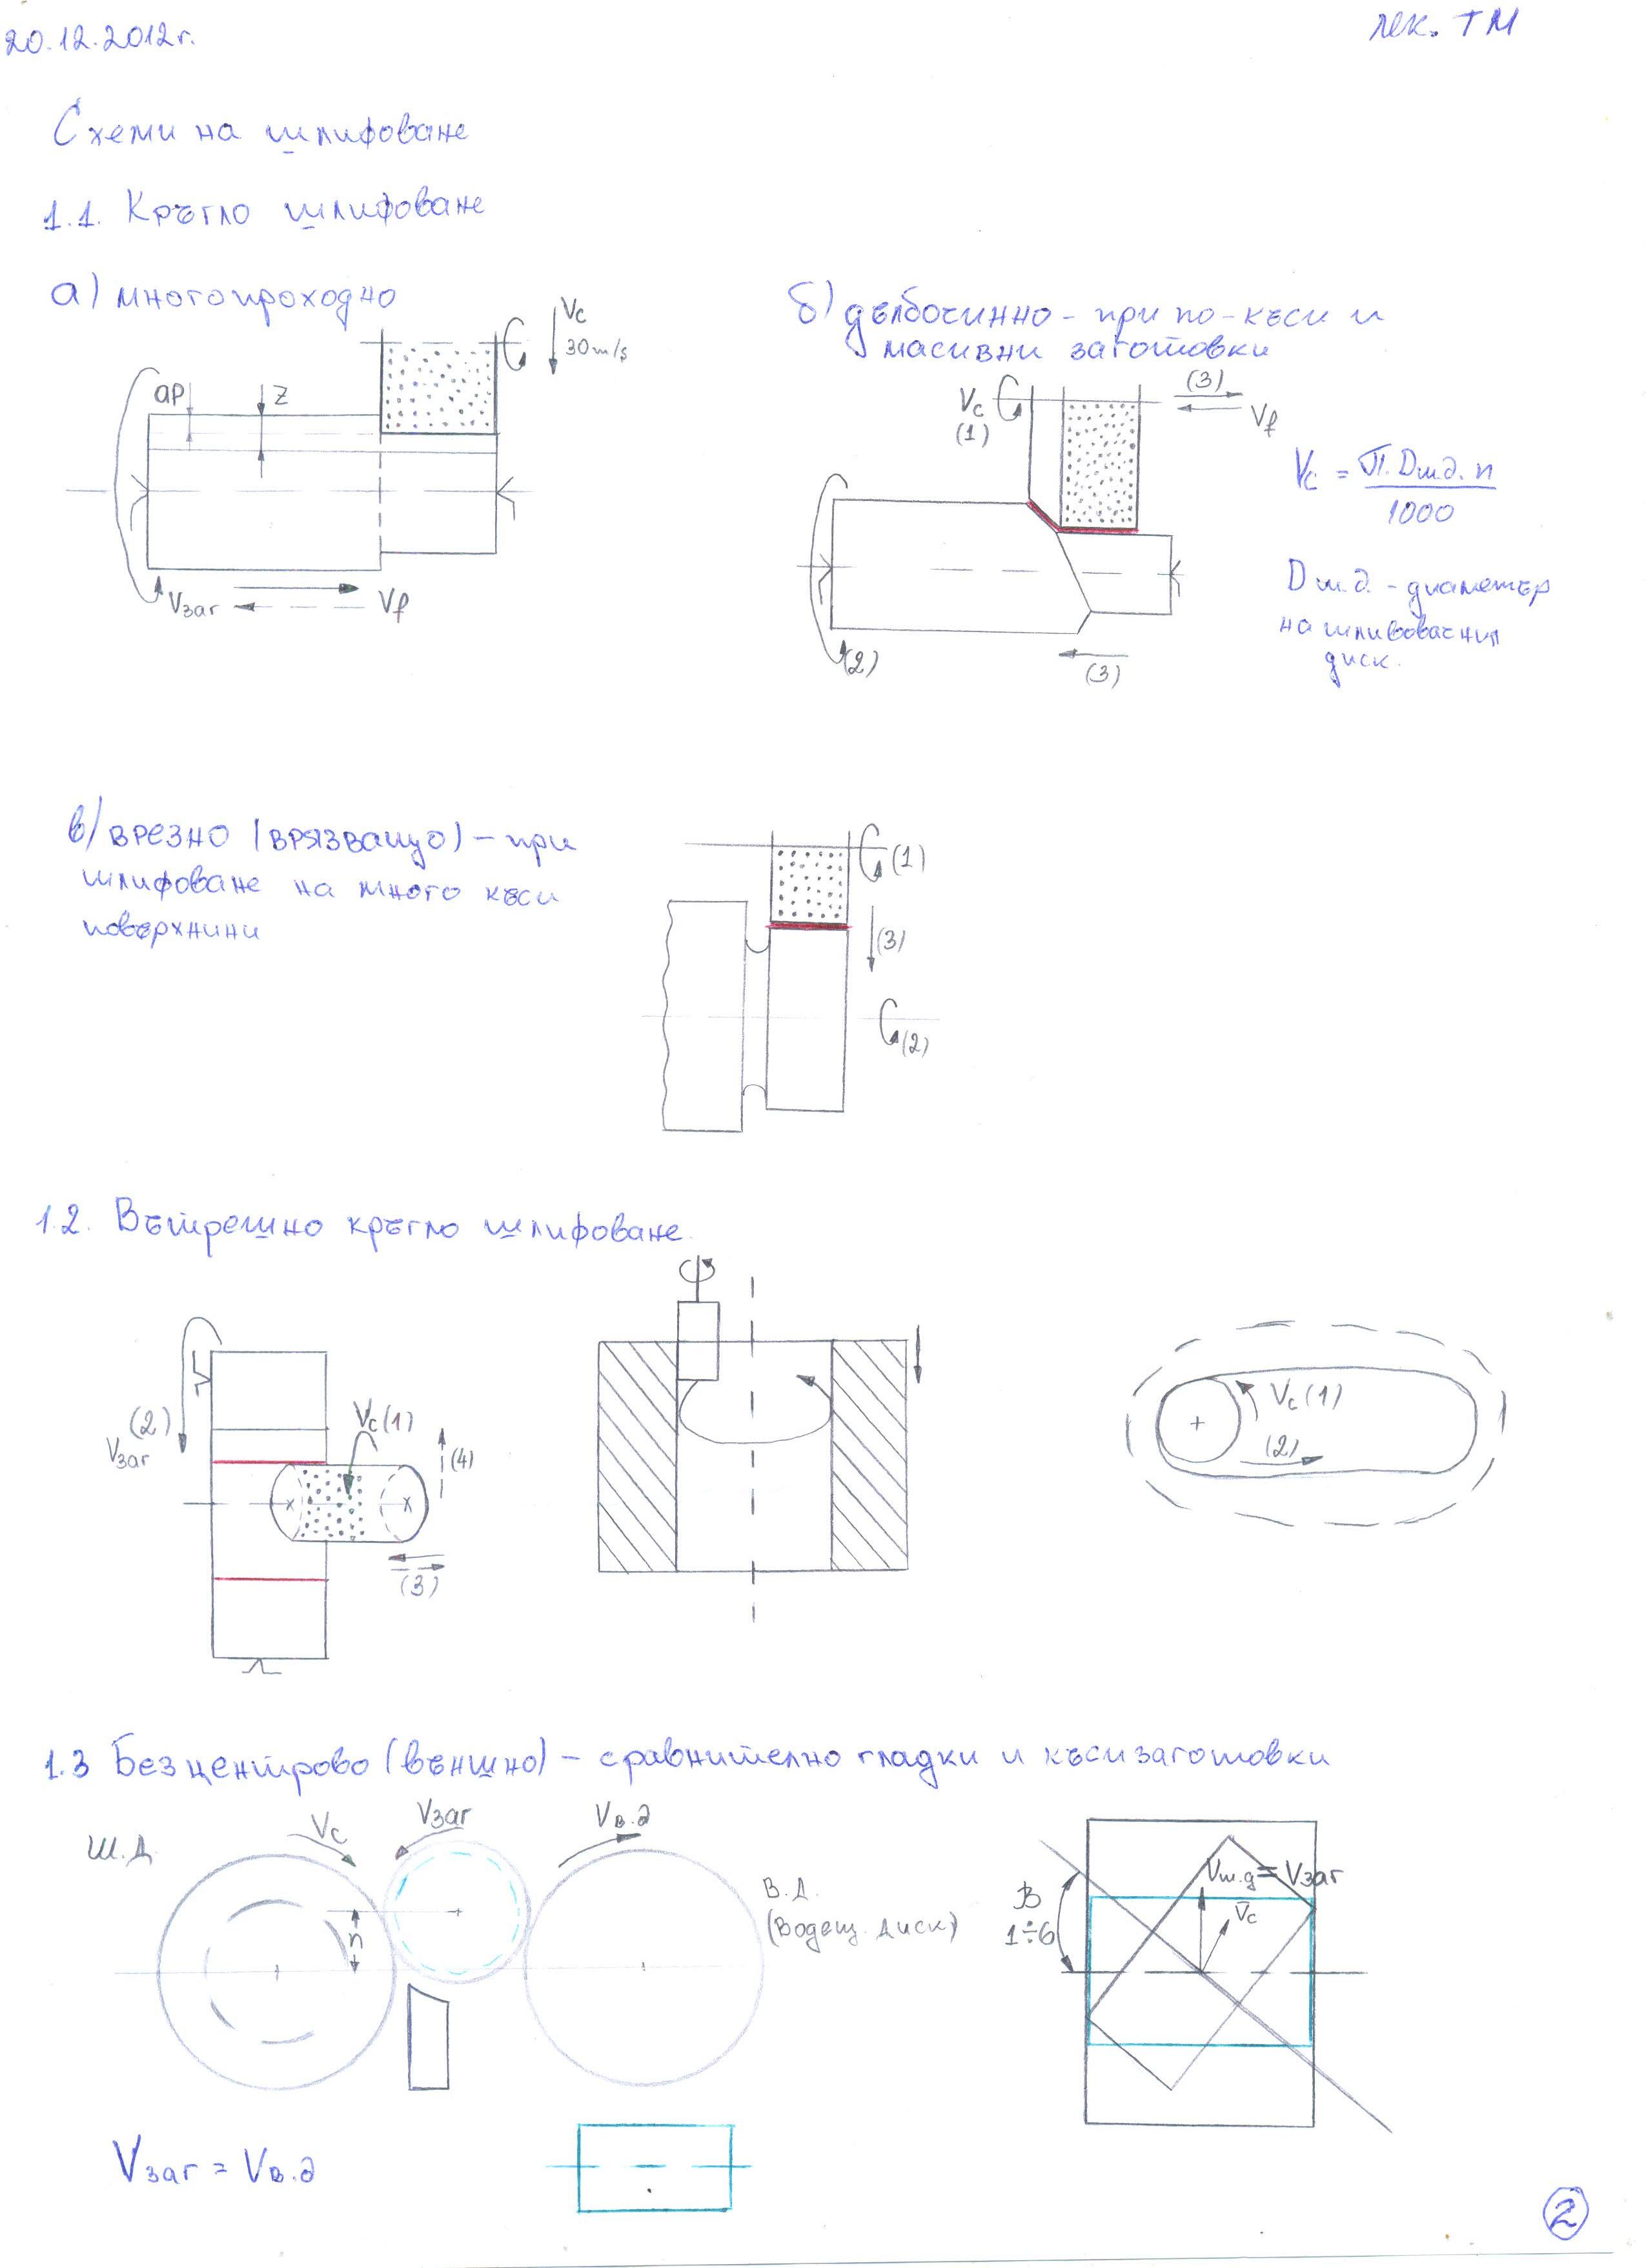 20.12.2012г.
лек. ТМ
Схеми на шлифоване
1.1. Кръгло шлифоване
а) многопроходно
Vc
30m/s
ap
z
Vзаг
Vf
б) дълбочинно - при по-къси и
масивни заготовки
Vc
(1)
(3)
Vf
(2)
(3)
Vc = π.Dш.д.n
1000
Dш.д. - диаметър
на шливовачния
диск.
в) врезно (врязващо) - при
шлифоване на много къси
повърхнини
(1)
(3)
(2)
1.2. Вътрешно кръгло шлифоване
(2)
Vзаг
Vc(1)
(4)
(3)
Vc(1)
(2)
1.3 Безцентрово (външно) - сравнително гладки и къси заготовки
Ш.Д.
Vc
Vзаг
Vв.д
h
В.Д.
(Водещ. диск)
β
1÷6
Vш.д = Vзаг
Vc
Vзаг = Vв.д
2